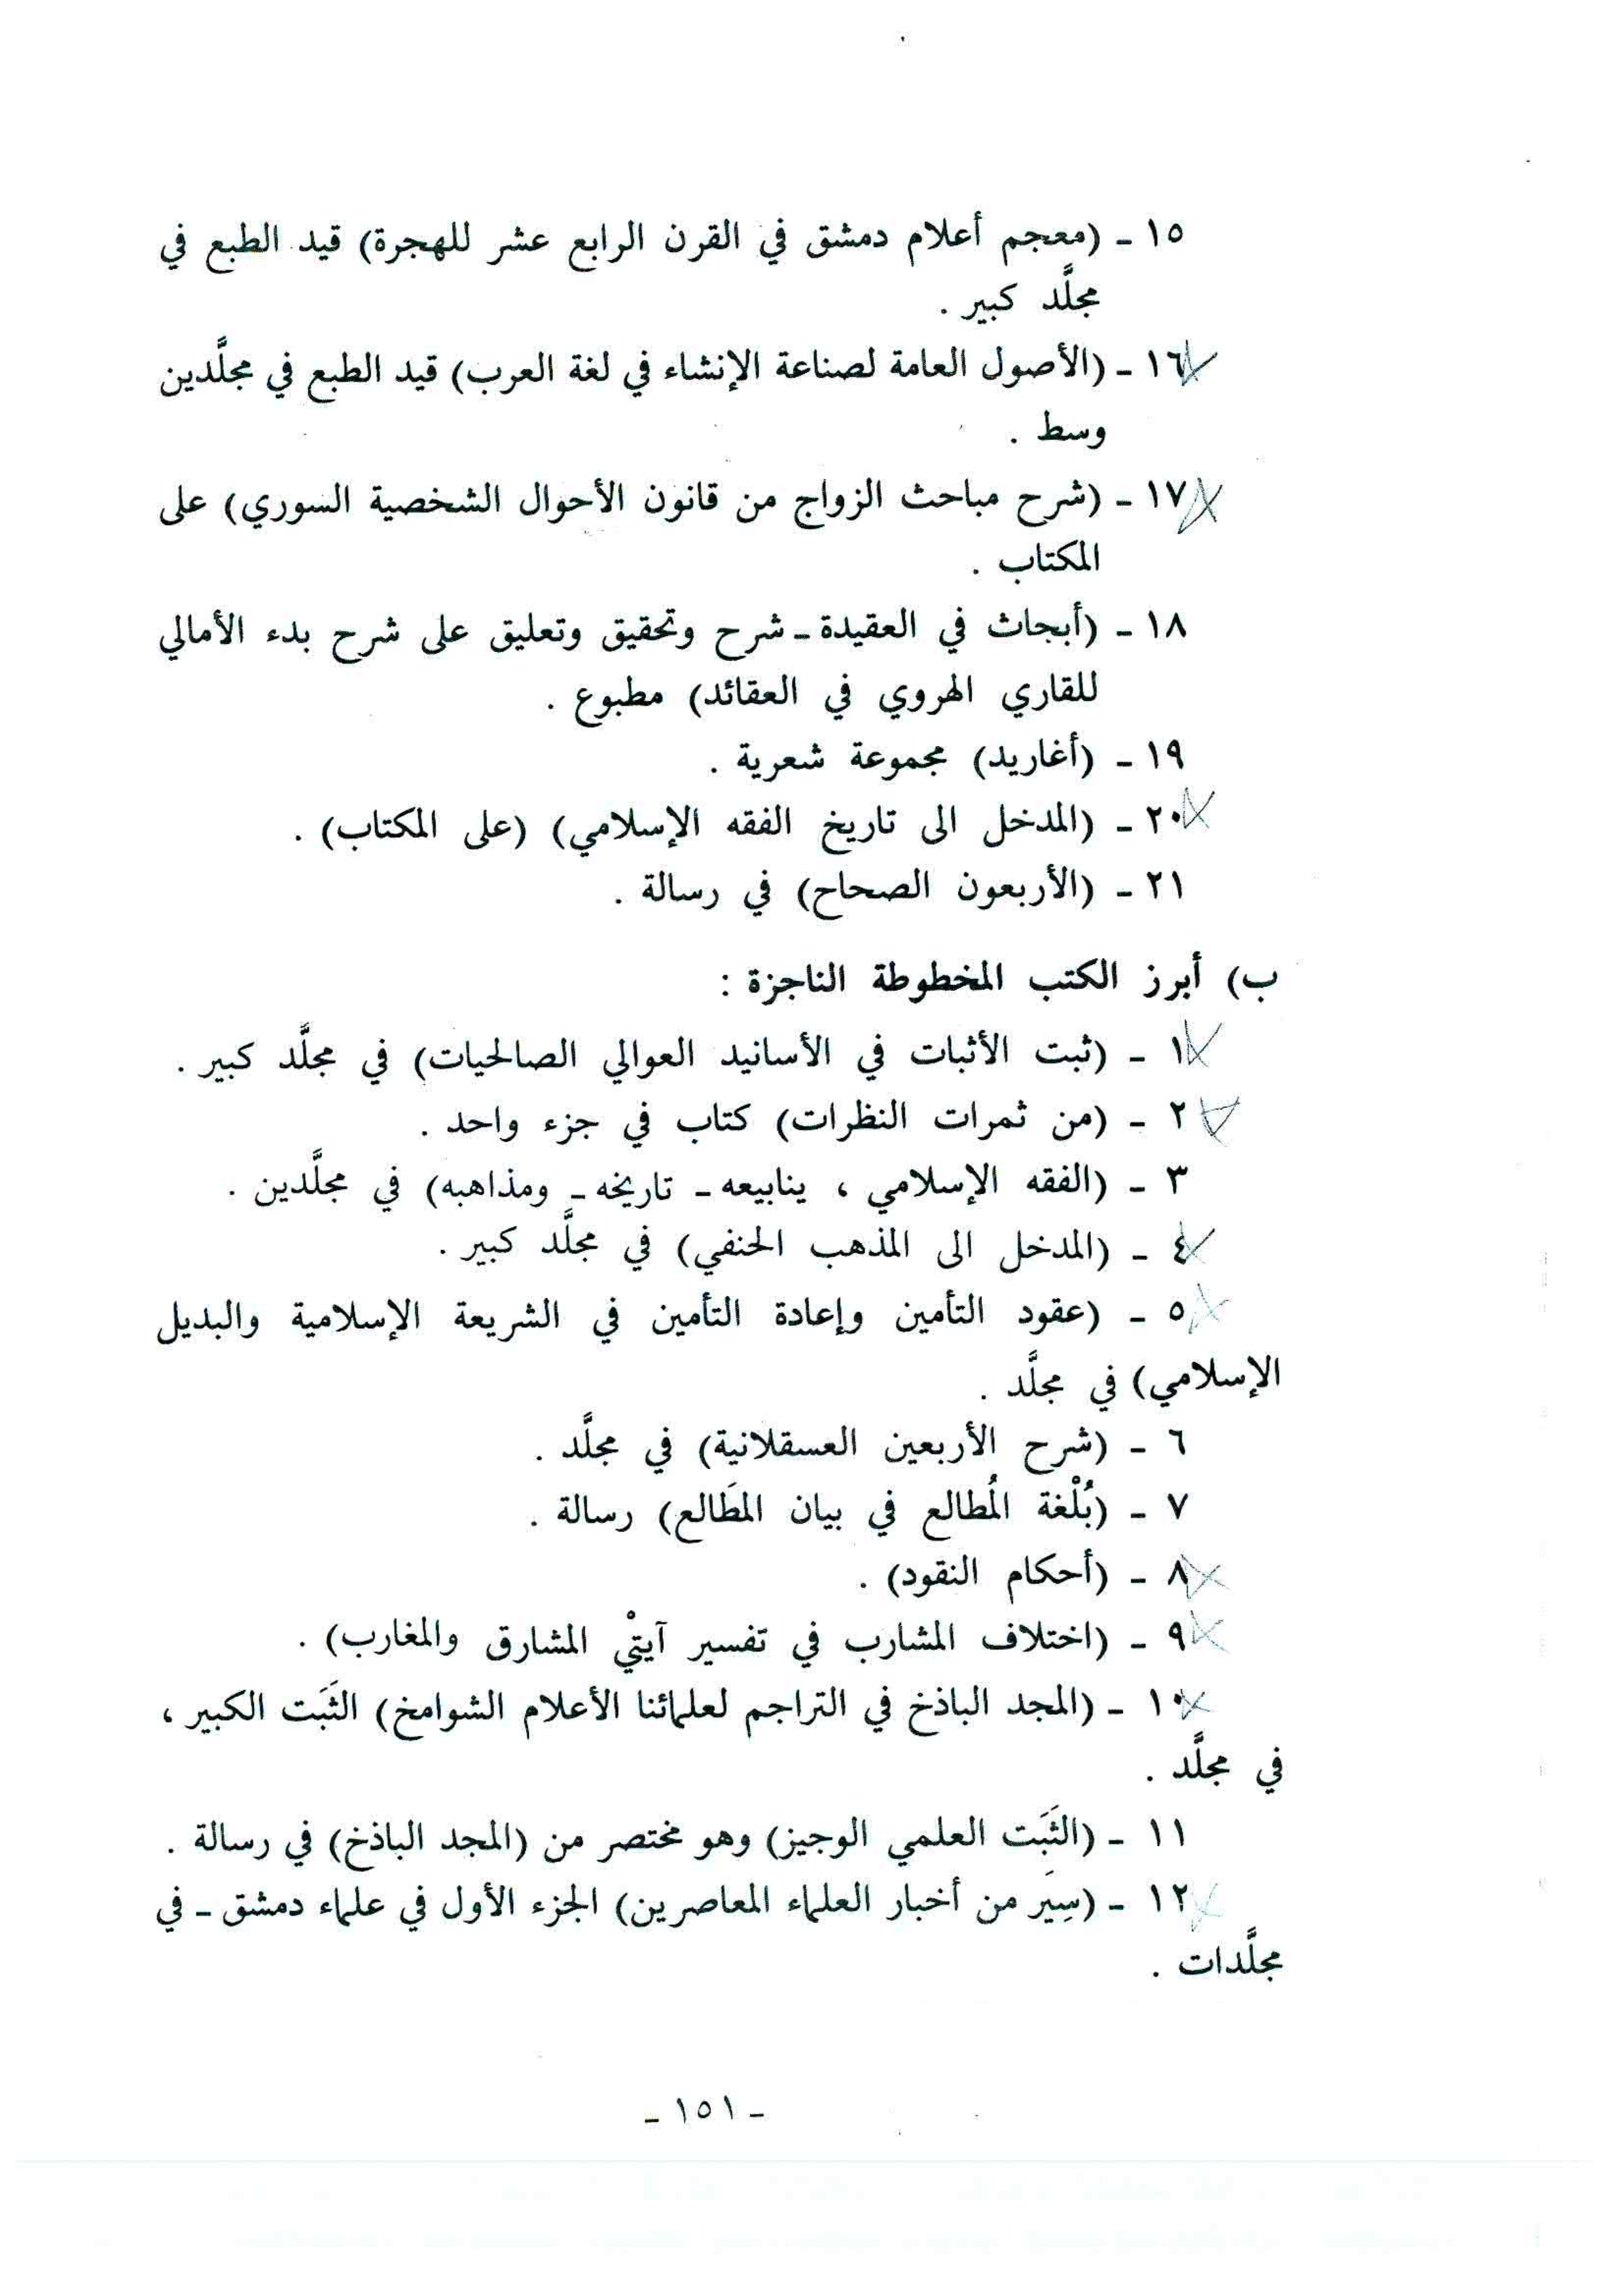 ١٥ - (معجم أعلام دمشق في القرن الرابع عشر للهجرة) قيد الطبع في
مجلَّد كبير .
١٦ - (الأصول العامة لصناعة الإنشاء في لغة العرب) قيد الطبع في مجلَّدين
وسط .
١٧ - (شرح مباحث الزواج من قانون الأحوال الشخصية السوري) على
المكتاب .
١٨ - (أبحاث في العقيدة - شرح وتحقيق وتعليق على شرح بدء الأمالي
للقاري الهروي في العقائد) مطبوع .
١٩ - (أغاريد) مجموعة شعرية .
٢٠ - (المدخل الى تاريخ الفقه الإسلامي) (على المكتاب) .
٢١ - (الأربعون الصحاح) في رسالة .
ب) أبرز الكتب المخطوطة الناجزة :
١ - (ثبت الأثبات في الأسانيد العوالي الصالحيات) في مجلَّد كبير .
٢ - (من ثمرات النظرات) كتاب في جزء واحد .
٣ - (الفقه الإسلامي ، ينابيعه - تاريخه - ومذاهبه) في مجلَّدين .
٤ - (المدخل الى المذهب الحنفي) في مجلَّد كبير .
٥ - (عقود التأمين وإعادة التأمين في الشريعة الإسلامية والبديل
الإسلامي) في مجلَّد .
٦ - (شرح الأربعين العسقلانية) في مجلَّد .
٧ - (بُلْغة المُطالع في بيان المطَالع) رسالة .
٨ - (أحكام النقود) .
٩ - (اختلاف المشارب في تفسير آيتيْ المشارق والمغارب) .
١٠ - (المجد الباذخ في التراجم لعلمائنا الأعلام الشوامخ) الثَبَت الكبير ،
في مجلَّد .
١١ - (الثَبَت العلمي الوجيز) وهو مختصر من (المجد الباذخ) في رسالة .
١٢ - (سِيَر من أخبار العلماء المعاصرين) الجزء الأول في علماء دمشق - في
مجلَّدات .
- ١٥١ -